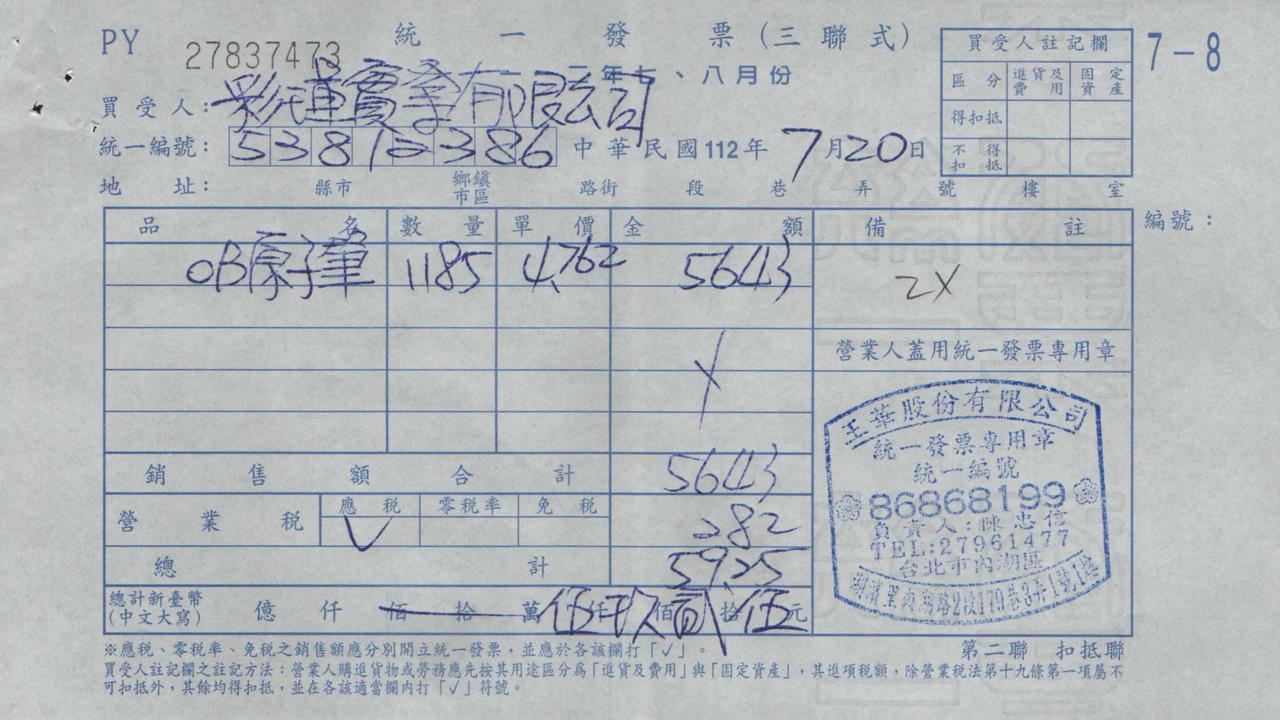 PY 27837473
統一發票(三聯式)
一二年七、八月份
7-8
買受人註記欄
區分 進貨及費用 固定資產
得扣抵
不得扣抵
買受人:彩運實業有限公司
統一編號:53812386
中華民國112年7月20日
地址: 縣市 鄉鎮市區 路街 段 巷 弄 號 樓 室
編號:
品名 數量 單價 金額 備註
OB原子筆 1185 4.762 5643 2X
營業人蓋用統一發票專用章
銷售額合計 5643
營業稅 應稅 V 零稅率 免稅 282
總計 5925
總計新臺幣(中文大寫) 億 仟 佰 拾 萬 伍仟 玖佰 貳拾 伍元
王華股份有限公司
統一發票專用章
統一編號
86868199
負責人:陳忠信
TEL:27961477
台北市內湖區
湖濱里內湖路2段179巷3弄1號1樓
※應稅、零稅率、免稅之銷售額應分別開立統一發票,並應於各該欄打「✓」。
第二聯 扣抵聯
買受人註記欄之註記方法:營業人購進貨物或勞務應先按其用途區分為「進貨及費用」與「固定資產」,其進項稅額,除營業稅法第十九條第一項屬不
可扣抵外,其餘均得扣抵,並在各該適當欄內打「✓」符號。